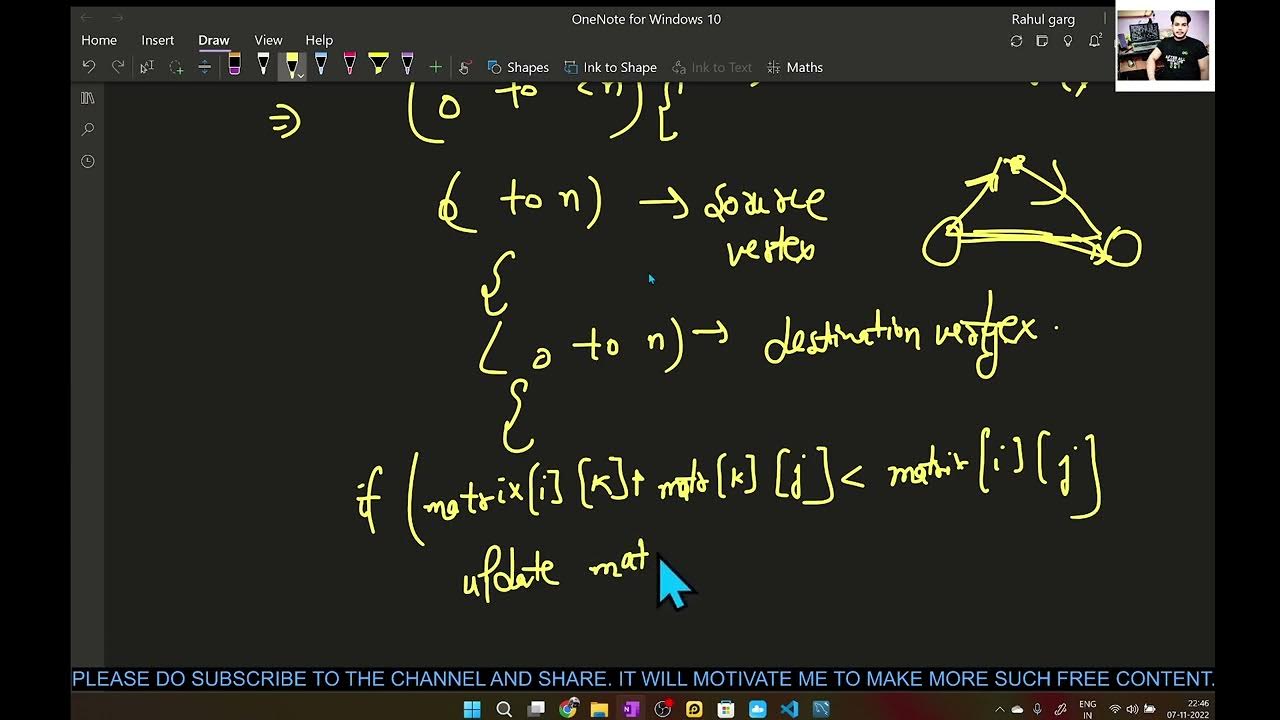 OneNote for Windows 10
Rahul garg
Home Insert Draw View Help
Shapes Ink to Shape Ink to Text Maths
=> (0 to <n) {
(0 to n) → source
vertex
{
(0 to n) → destination vertex.
{
if (matrix[i][k]+ matr[k][j] < matrix[i][j]
update mat
PLEASE DO SUBSCRIBE TO THE CHANNEL AND SHARE. IT WILL MOTIVATE ME TO MAKE MORE SUCH FREE CONTENT.
ENG
IN
22:46
07-11-2022